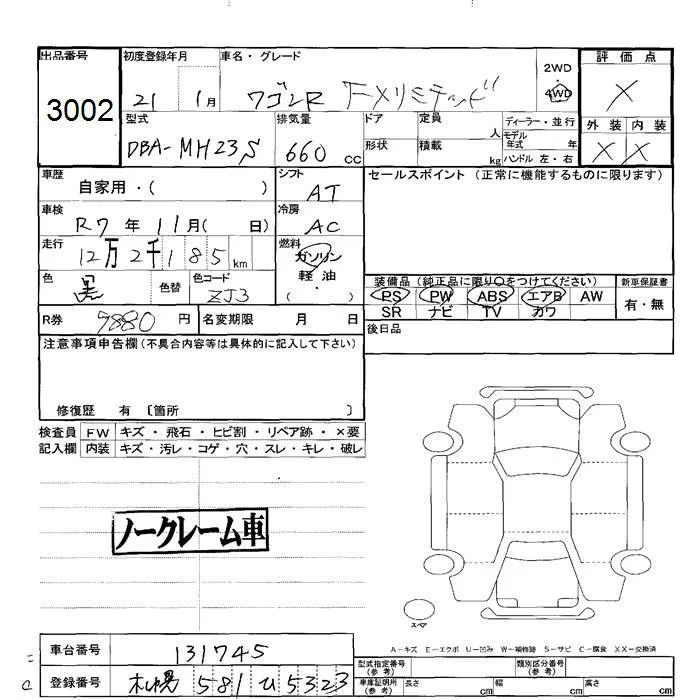 出品番号 初度登録年月 車名・グレード 2WD 4WD 評価点
3002 21 1月 ワゴンR FXリミテッド X
外装 内装
X X
型式 排気量 ドア 定員 人 ディーラー・並行
DBA-MH23S 660 cc 形状 積載 kg モデル年式 年
ハンドル 左・右
車歴 自家用・( ) シフト AT
セールスポイント(正常に機能するものに限ります)
車検 R7年 11月( 日) 冷房 AC
走行 12万2千185 km 燃料 ガソリン 軽油・( )
色 黒 色替 色コード ZJ3
装備品(純正品に限り○をつけてください) 新車保証書
PS PW ABS エアB AW 有・無
SR ナビ TV カワ
R券 9880 円 名変期限 月 日
後日品
注意事項申告欄(不具合内容等は具体的に記入して下さい)
修復歴 有 〔箇所 〕
検査員 FW キズ・飛石・ヒビ割・リペア跡・×要
記入欄 内装 キズ・汚レ・コゲ・穴・スレ・キレ・破レ
ノークレーム車
スペア
A-キズ E-エクボ U-凹み W-補修跡 S-サビ C-腐食 XX-交換済
車台番号 131745
型式指定番号(参考) 類別区分番号(参考)
登録番号 札幌 581 い 5323
車庫証明用(参考) 長さ cm 幅 cm 高さ cm